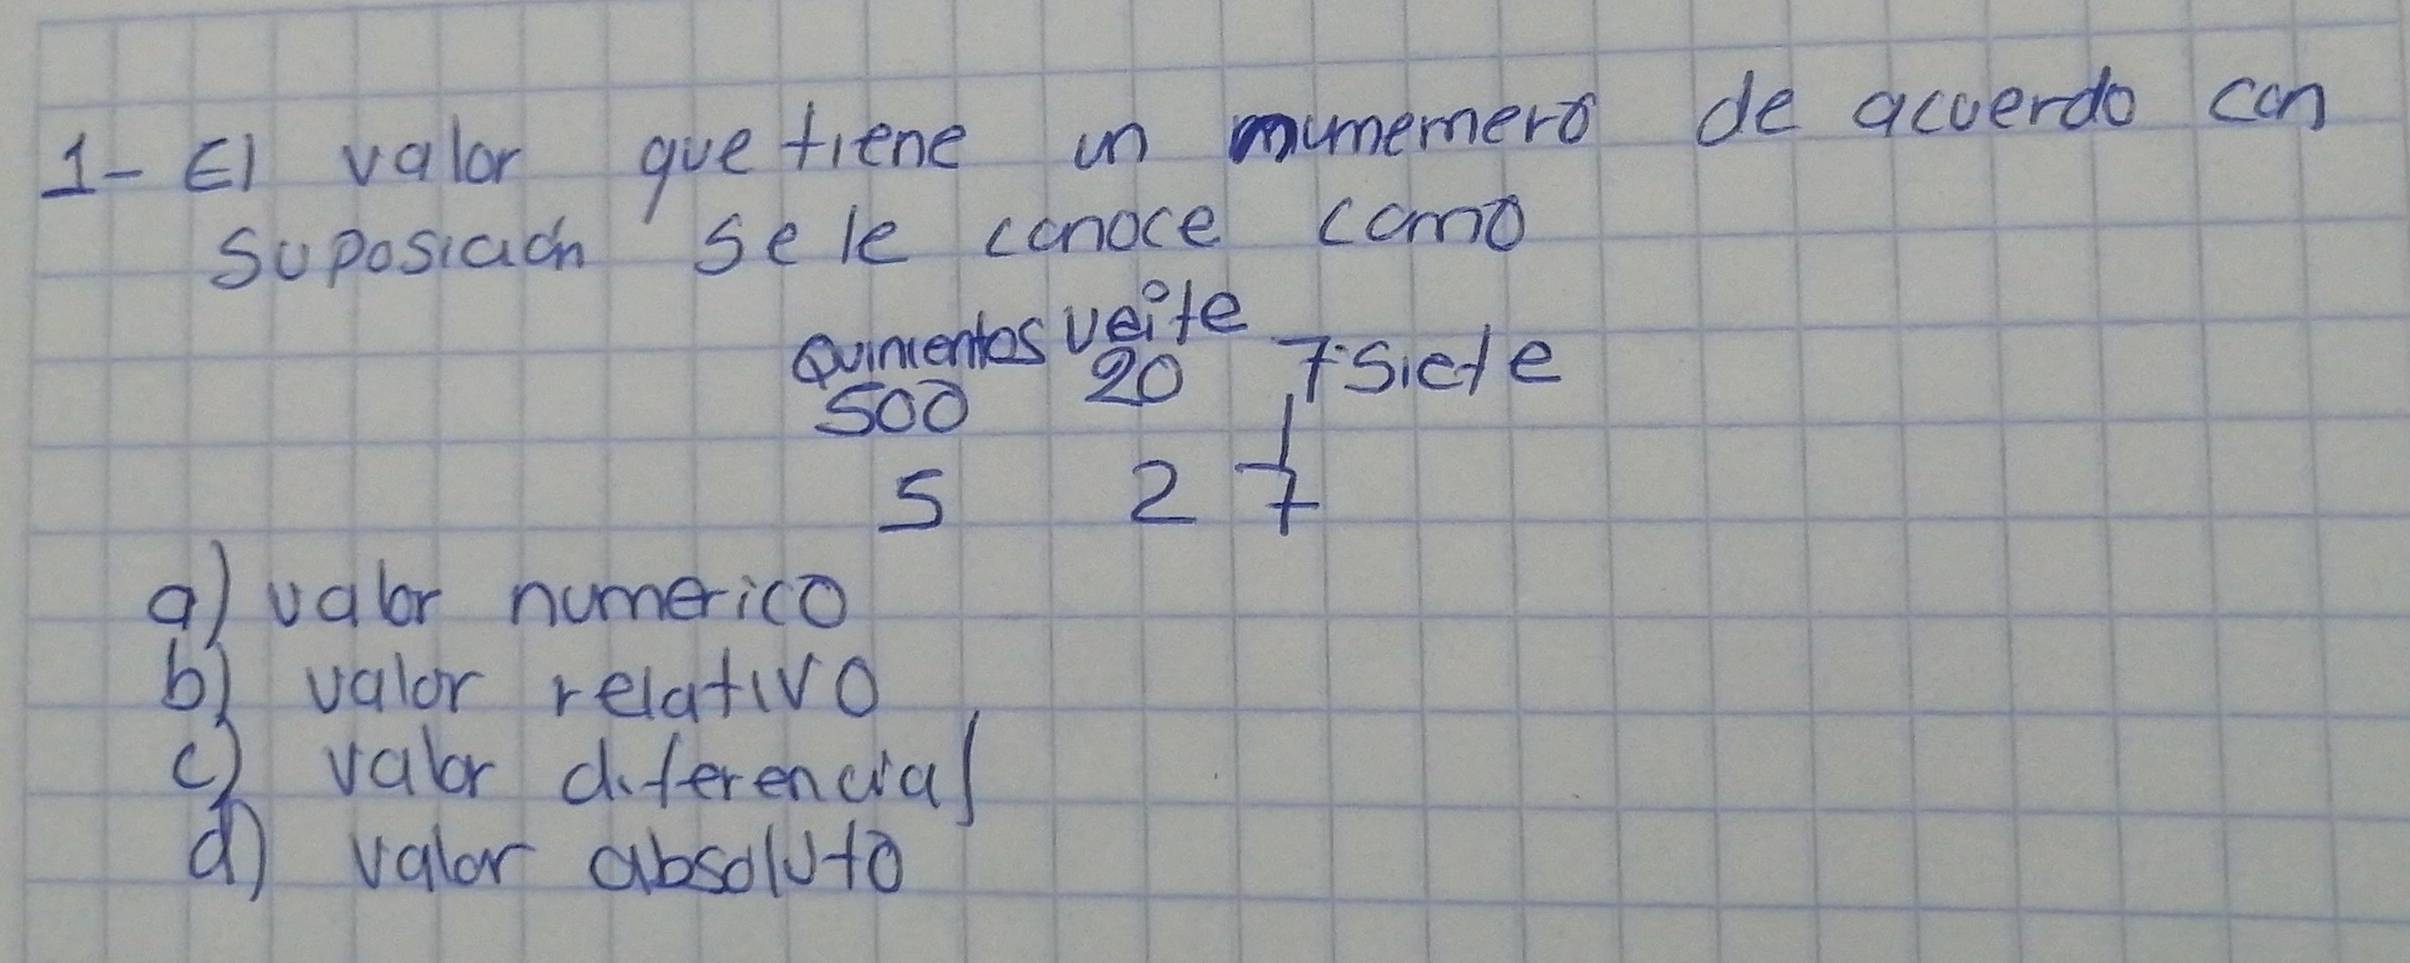 1- El valor que tiene un mumemero de acuerdo con
su posicion se le conoce como
Quinientos veite
500 20 7 siete
5 2 7
a) valor numerico
b) valor relativo
c) valor diferencial
d) valor absoluto